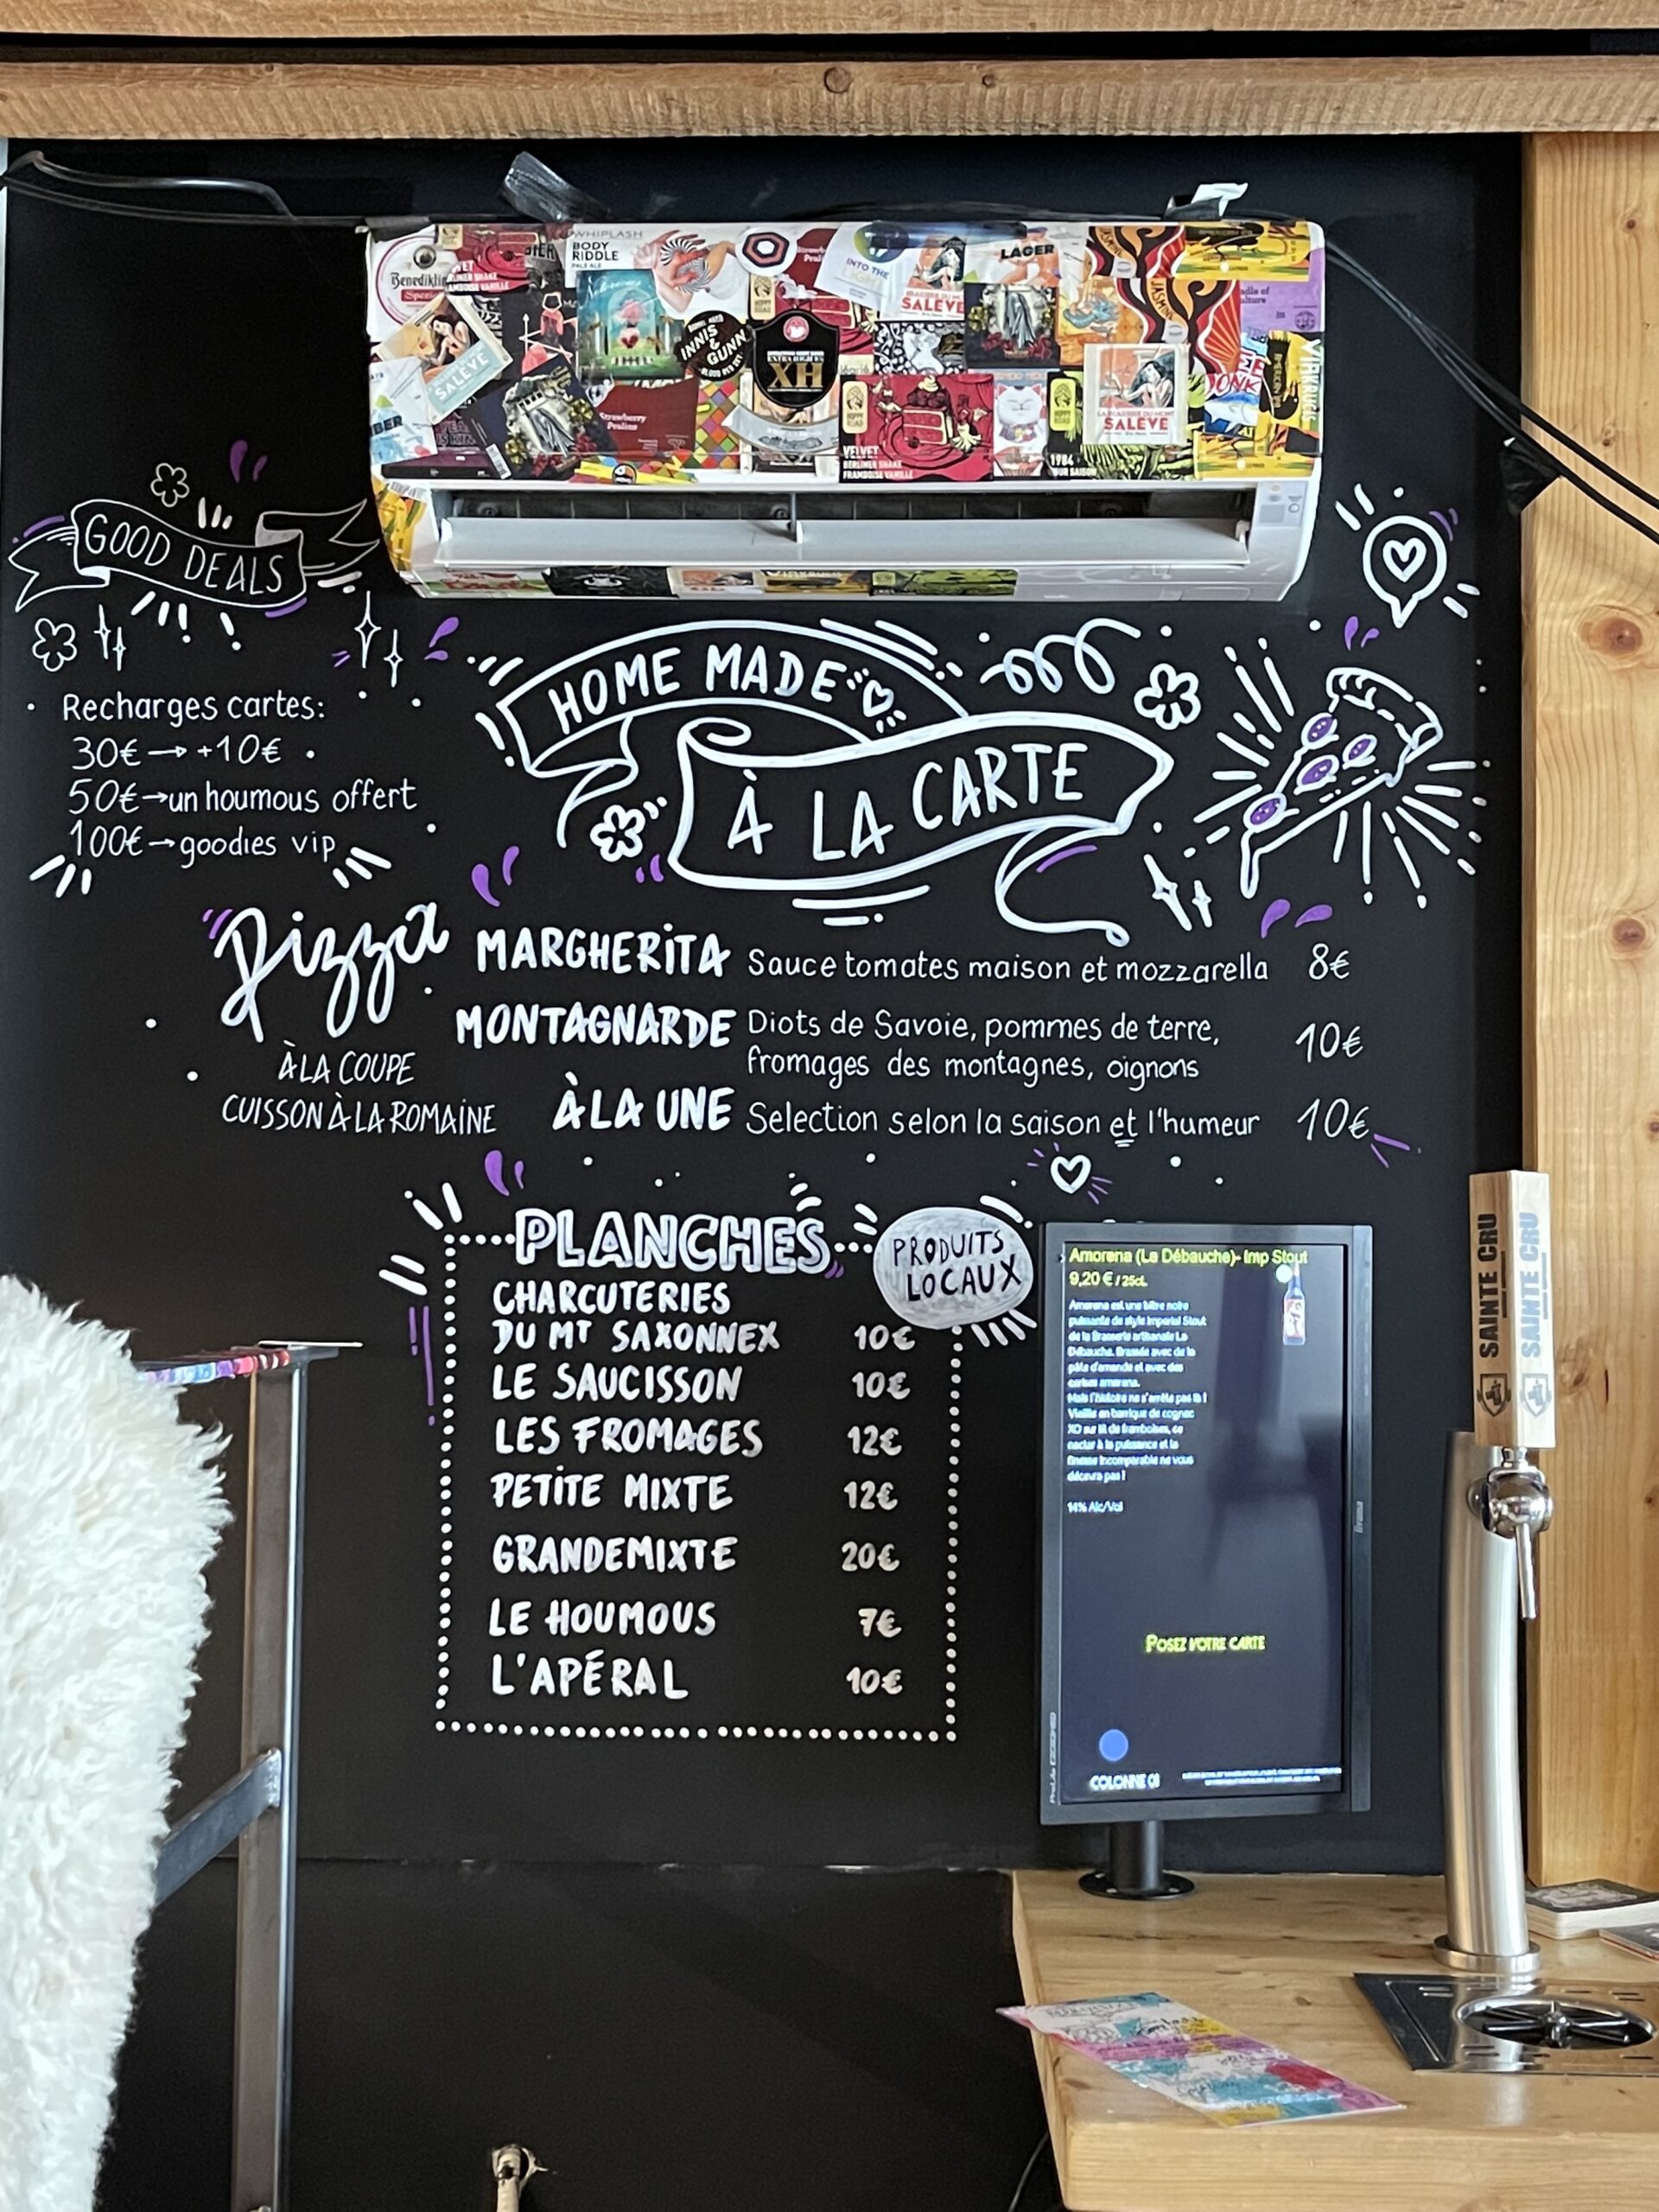 WHIPLASH
BODY
RIDDLE
PALE ALE
LAGER
INTO THE
SALEVE
INNIS
&
GUNN
XH
SALEVE
Strawberry
Praline
VELVET
BERLINER SHAKE
FRAMBOISE VANILLE
1984
LA BRASSERIE DU MONT
SALEVE
GOOD DEALS
Recharges cartes:
30€ → +10€
50€→un houmous offert
100€→goodies vip
HOME MADE
À LA CARTE
Pizza
À LA COUPE
CUISSON À LA ROMAINE
MARGHERITA Sauce tomates maison et mozzarella 8€
MONTAGNARDE Diots de Savoie, pommes de terre,
fromages des montagnes, oignons 10€
À LA UNE Selection selon la saison et l'humeur 10€
PLANCHES
PRODUITS
LOCAUX
CHARCUTERIES
DU MT SAXONNEX 10€
LE SAUCISSON 10€
LES FROMAGES 12€
PETITE MIXTE 12€
GRANDE MIXTE 20€
LE HOUMOUS 7€
L'APÉRAL 10€
Amorena (La Débauche)- Imp Stout
9,20 € / 25cL
Amorena est une bière noire
puissante de style Imperial Stout
de la Brasserie artisanale La
Débauche. Brassée avec de la
pâte d'amande et avec des
cerises amarena.
Mais l'histoire ne s'arrête pas là !
Vieillie en barrique de cognac
XO sur lit de framboises, ce
nectar à la puissance et la
finesse incomparable ne vous
décevra pas !
14% Alc/Vol
POSEZ VOTRE CARTE
COLONNE 01
SAINTE CRU
SAINTE CRU